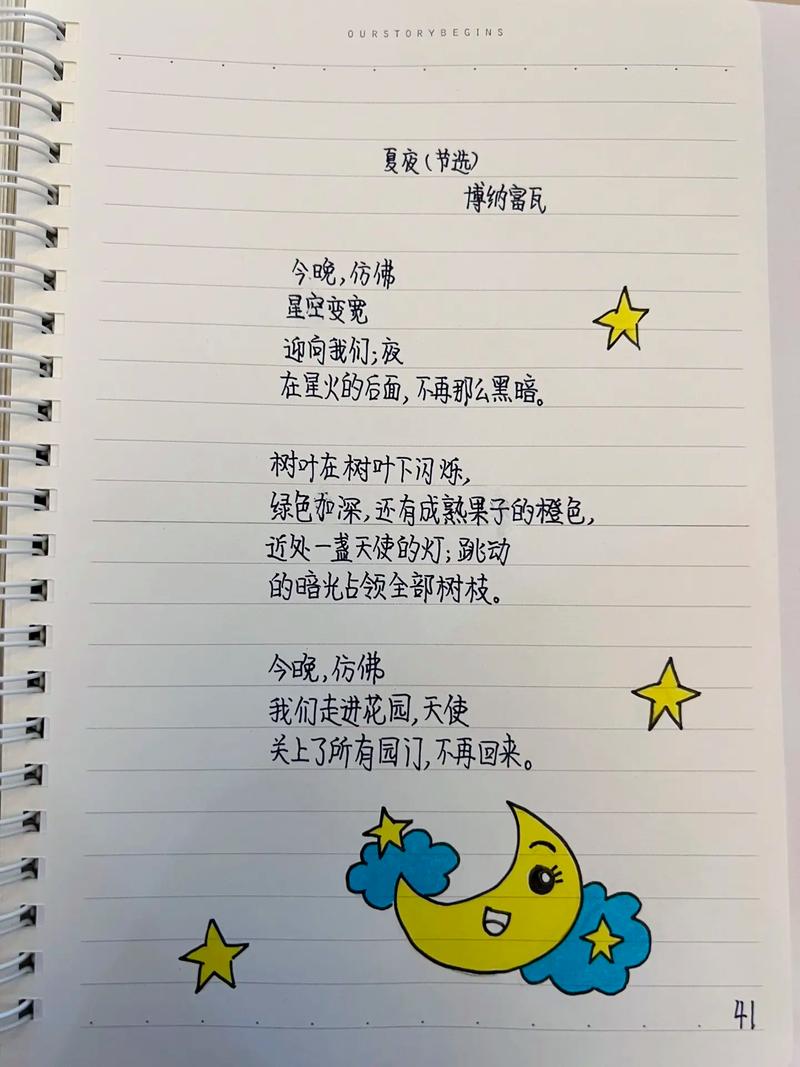 OURSTORYBEGINS
夏夜(节选)
博纳富瓦
今晚,仿佛
星空变宽
迎向我们;夜
在星火的后面,不再那么黑暗。
树叶在树叶下闪烁,
绿色加深,还有成熟果子的橙色,
近处一盏天使的灯;跳动
的暗光占领全部树枝。
今晚,仿佛
我们走进花园,天使
关上了所有园门,不再回来。
41